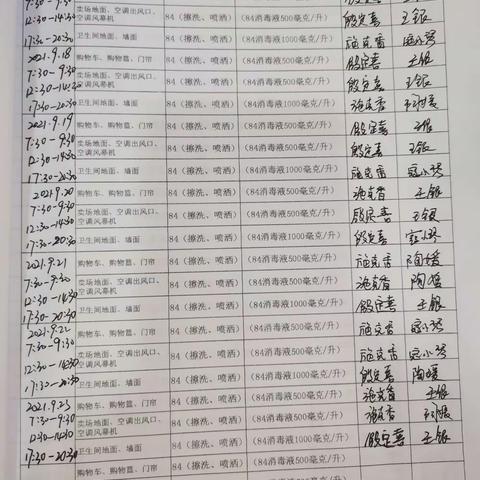 12:30-14:30 卖场地面、空调出风口、空调风幕机 84（擦洗、喷洒） （84消毒液500毫克/升） 殷定善 王银
17:30-20:30 卫生间地面、墙面 84（擦洗、喷洒） （84消毒液1000毫克/升） 施克香 寇小琴
2021.9.18
7:30-9:30 购物车、购物篮、门帘 84（擦洗、喷洒） （84消毒液500毫克/升） 殷定善 王银
12:30-14:30 卖场地面、空调出风口、空调风幕机 84（擦洗、喷洒） （84消毒液500毫克/升） 殷定善 王银
17:30-20:30 卫生间地面、墙面 84（擦洗、喷洒） （84消毒液1000毫克/升） 施克香
2021.9.19
7:30-9:30 购物车、购物篮、门帘 84（擦洗、喷洒） （84消毒液500毫克/升） 殷定善 王银
12:30-14:30 卖场地面、空调出风口、空调风幕机 84（擦洗、喷洒） （84消毒液500毫克/升） 殷定善 王银
17:30-20:30 卫生间地面、墙面 84（擦洗、喷洒） （84消毒液1000毫克/升） 施克香 寇小琴
2021.9.20
7:30-9:30 购物车、购物篮、门帘 84（擦洗、喷洒） （84消毒液500毫克/升） 施克香 王银
12:30-14:30 卖场地面、空调出风口、空调风幕机 84（擦洗、喷洒） （84消毒液500毫克/升） 殷定善 王银
17:30-20:30 卫生间地面、墙面 84（擦洗、喷洒） （84消毒液1000毫克/升） 殷定善 寇小琴
2021.9.21
7:30-9:30 购物车、购物篮、门帘 84（擦洗、喷洒） （84消毒液500毫克/升） 施克香 陶媛
12:30-14:30 卖场地面、空调出风口、空调风幕机 84（擦洗、喷洒） （84消毒液500毫克/升） 施克香 陶媛
17:30-20:30 卫生间地面、墙面 84（擦洗、喷洒） （84消毒液1000毫克/升） 殷定善 王银
2021.9.22
7:30-9:30 购物车、购物篮、门帘 84（擦洗、喷洒） （84消毒液500毫克/升） 施克香 寇小琴
12:30-14:30 卖场地面、空调出风口、空调风幕机 84（擦洗、喷洒） （84消毒液500毫克/升） 施克香 寇小琴
17:30-20:30 卫生间地面、墙面 84（擦洗、喷洒） （84消毒液1000毫克/升） 殷定善 陶媛
2021.9.23
7:30-9:30 购物车、购物篮、门帘 84（擦洗、喷洒） （84消毒液500毫克/升） 施克香 王银
12:30-14:30 卖场地面、空调出风口、空调风幕机 84（擦洗、喷洒） （84消毒液500毫克/升） 施克香
17:30-20:30 卫生间地面、墙面 84（擦洗、喷洒） （84消毒液1000毫克/升） 殷定善 王银
购物车、购物篮、门帘 84（擦洗、喷洒） （84消毒液500毫克/升）